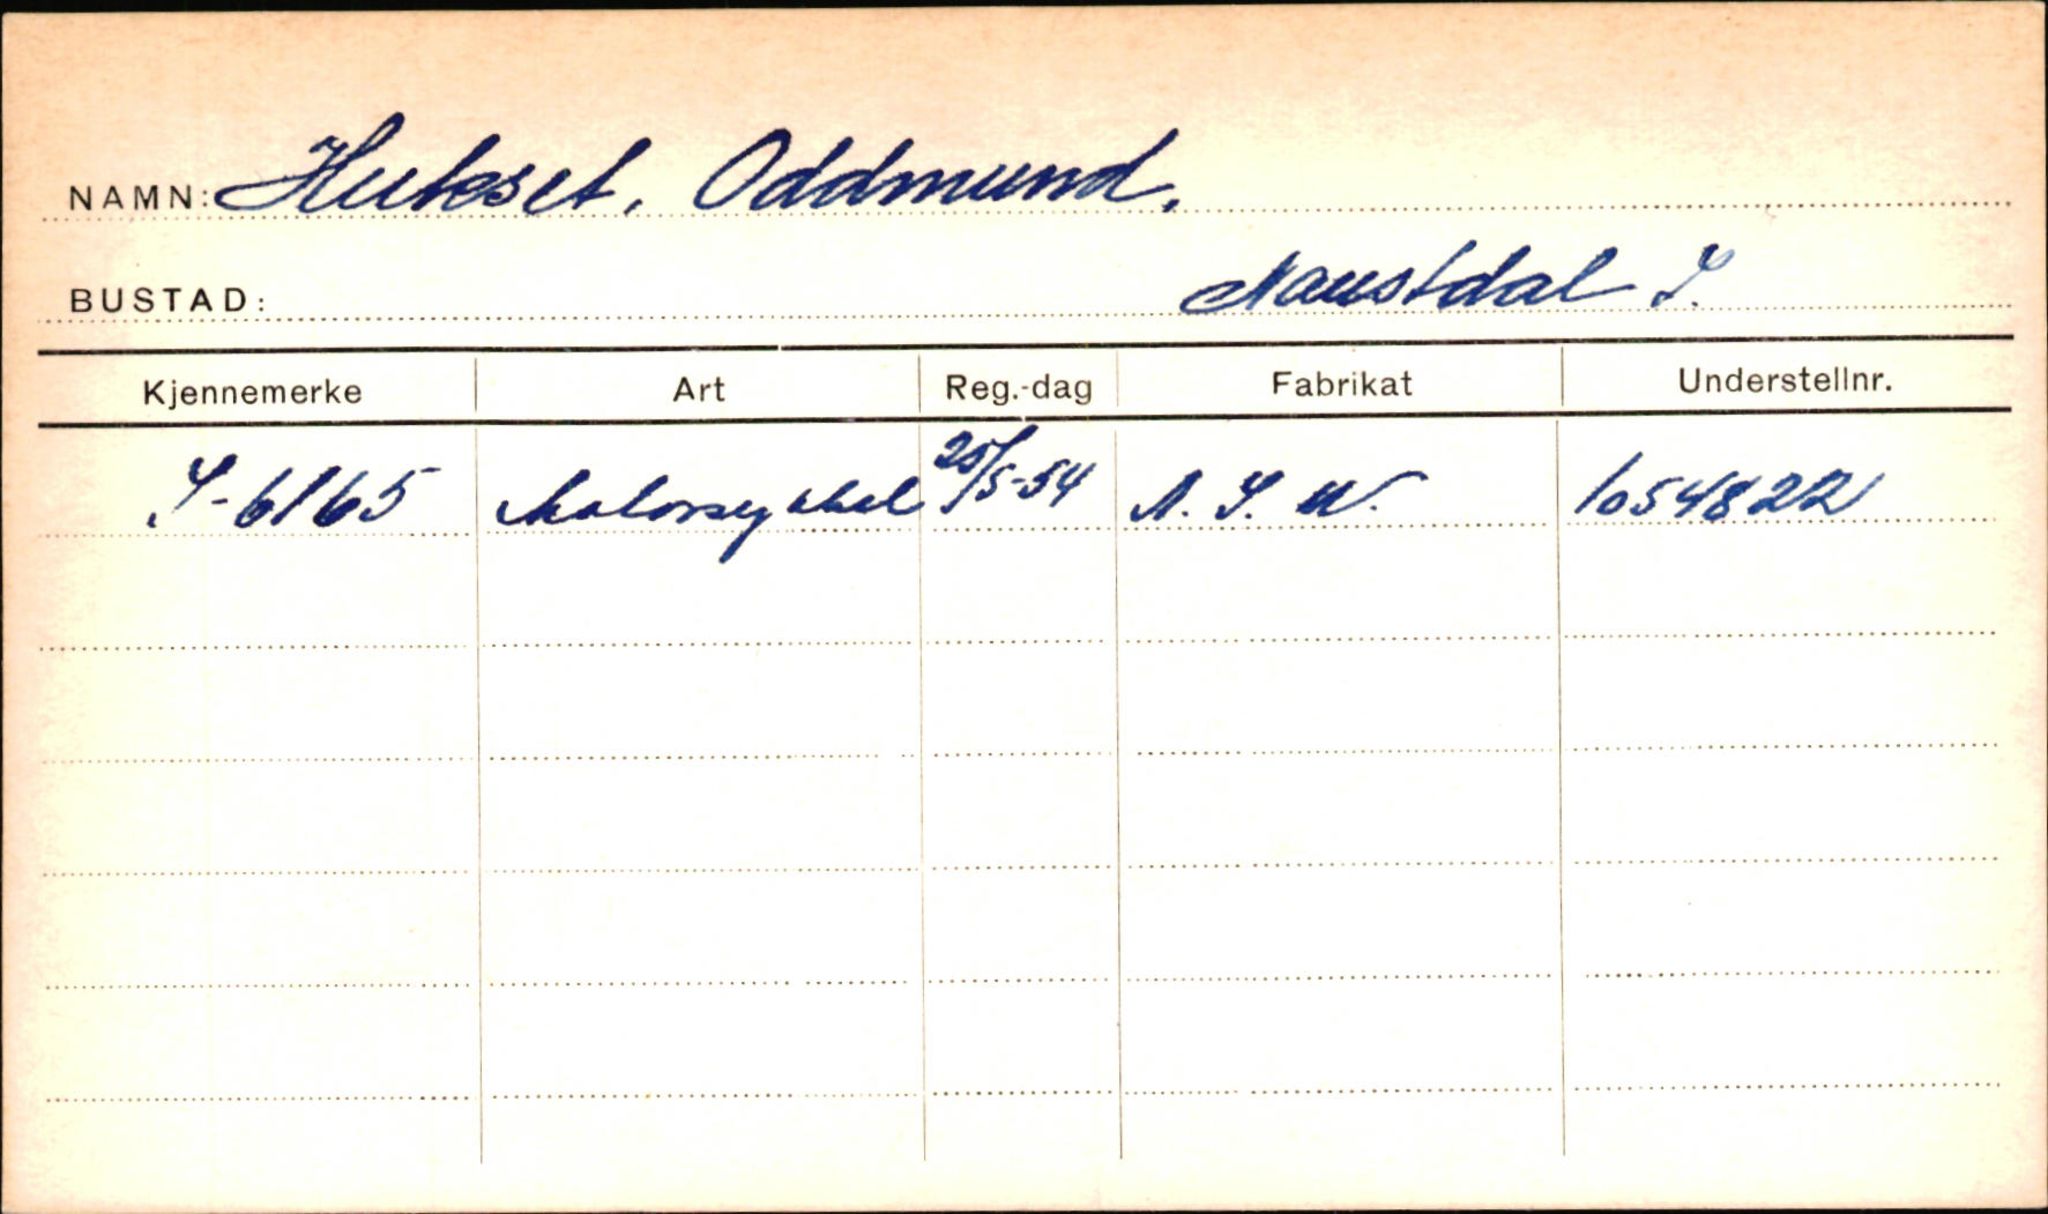 NAMN: Hukset, Oddmund.
BUSTAD: Naustdal S.
Kjennemerke Art Reg.-dag Fabrikat Understellnr.
S-6165 Motorsykkel 25/5-54 N.S.U. 1054822